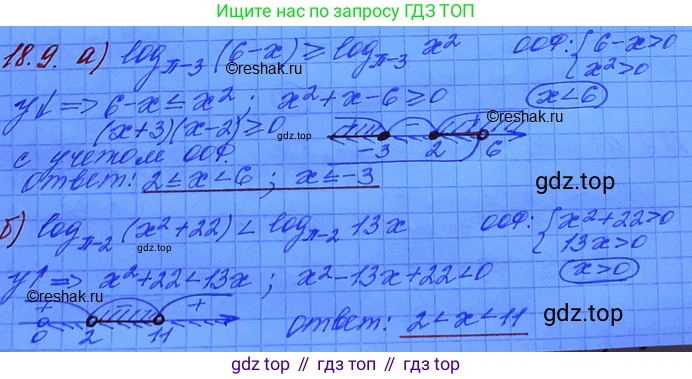 Ищите нас по запросу ГДЗ ТОП
18.9. а) log_{π-3} (6-x) ≥ log_{π-3} x² ООФ: { 6-x>0
x²>0
©reshak.ru
y↓ => 6-x ≤ x² ; x²+x-6 ≥ 0 x<6
(x+3)(x-2) ≥ 0 gdz.top + - + ©reshak.ru
-3 2 6
с учетом ООФ.
ответ: 2≤x<6 ; x≤-3 gdz.top
б) log_{π-2} (x²+22) < log_{π-2} 13x ООФ: { x²+22>0
13x>0
gdz.top
y↑ => x²+22<13x ; x²-13x+22<0 x>0
+ - + ©reshak.ru
0 2 11 ответ: 2<x<11 gdz.top
gdz.top // гдз.топ // gdz.top // гдз.топ // gdz.top